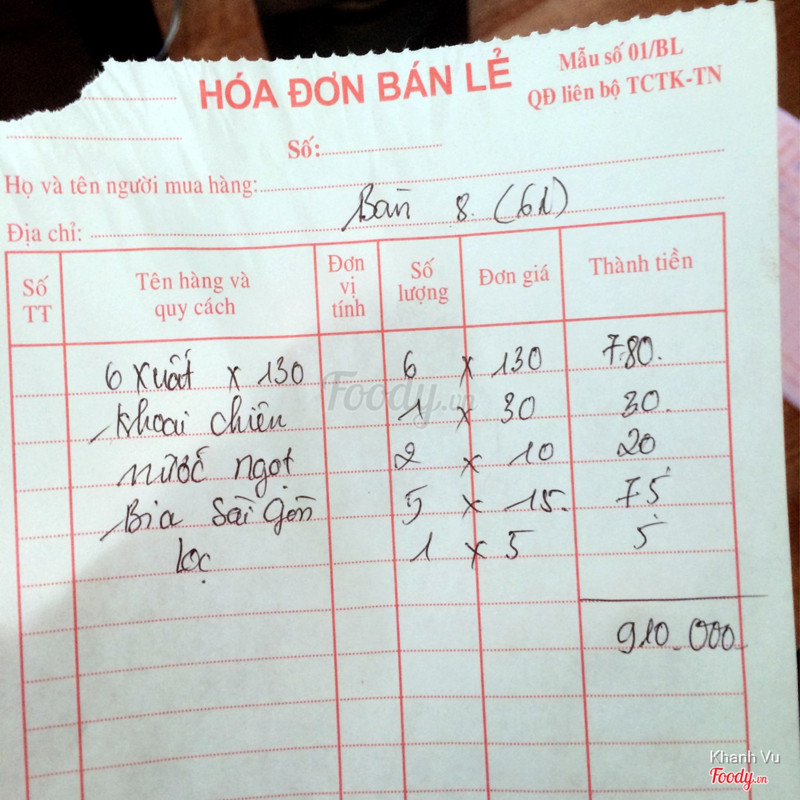 HÓA ĐƠN BÁN LẺ
Mẫu số 01/BL
QĐ liên bộ TCTK-TN
Số:
Họ và tên người mua hàng:
Bàn 8. (6L)
Địa chỉ:
Số TT | Tên hàng và quy cách | Đơn vị tính | Số lượng | Đơn giá | Thành tiền
6 xuất x 130 6 x 130 780.
Khoai chiên 1 x 30 30.
nước ngọt 2 x 10 20
Bia Sài Gòn 5 x 15. 75
lọc 1 x 5 5
910.000
Foody.vn
Khanh Vu
Foody.vn